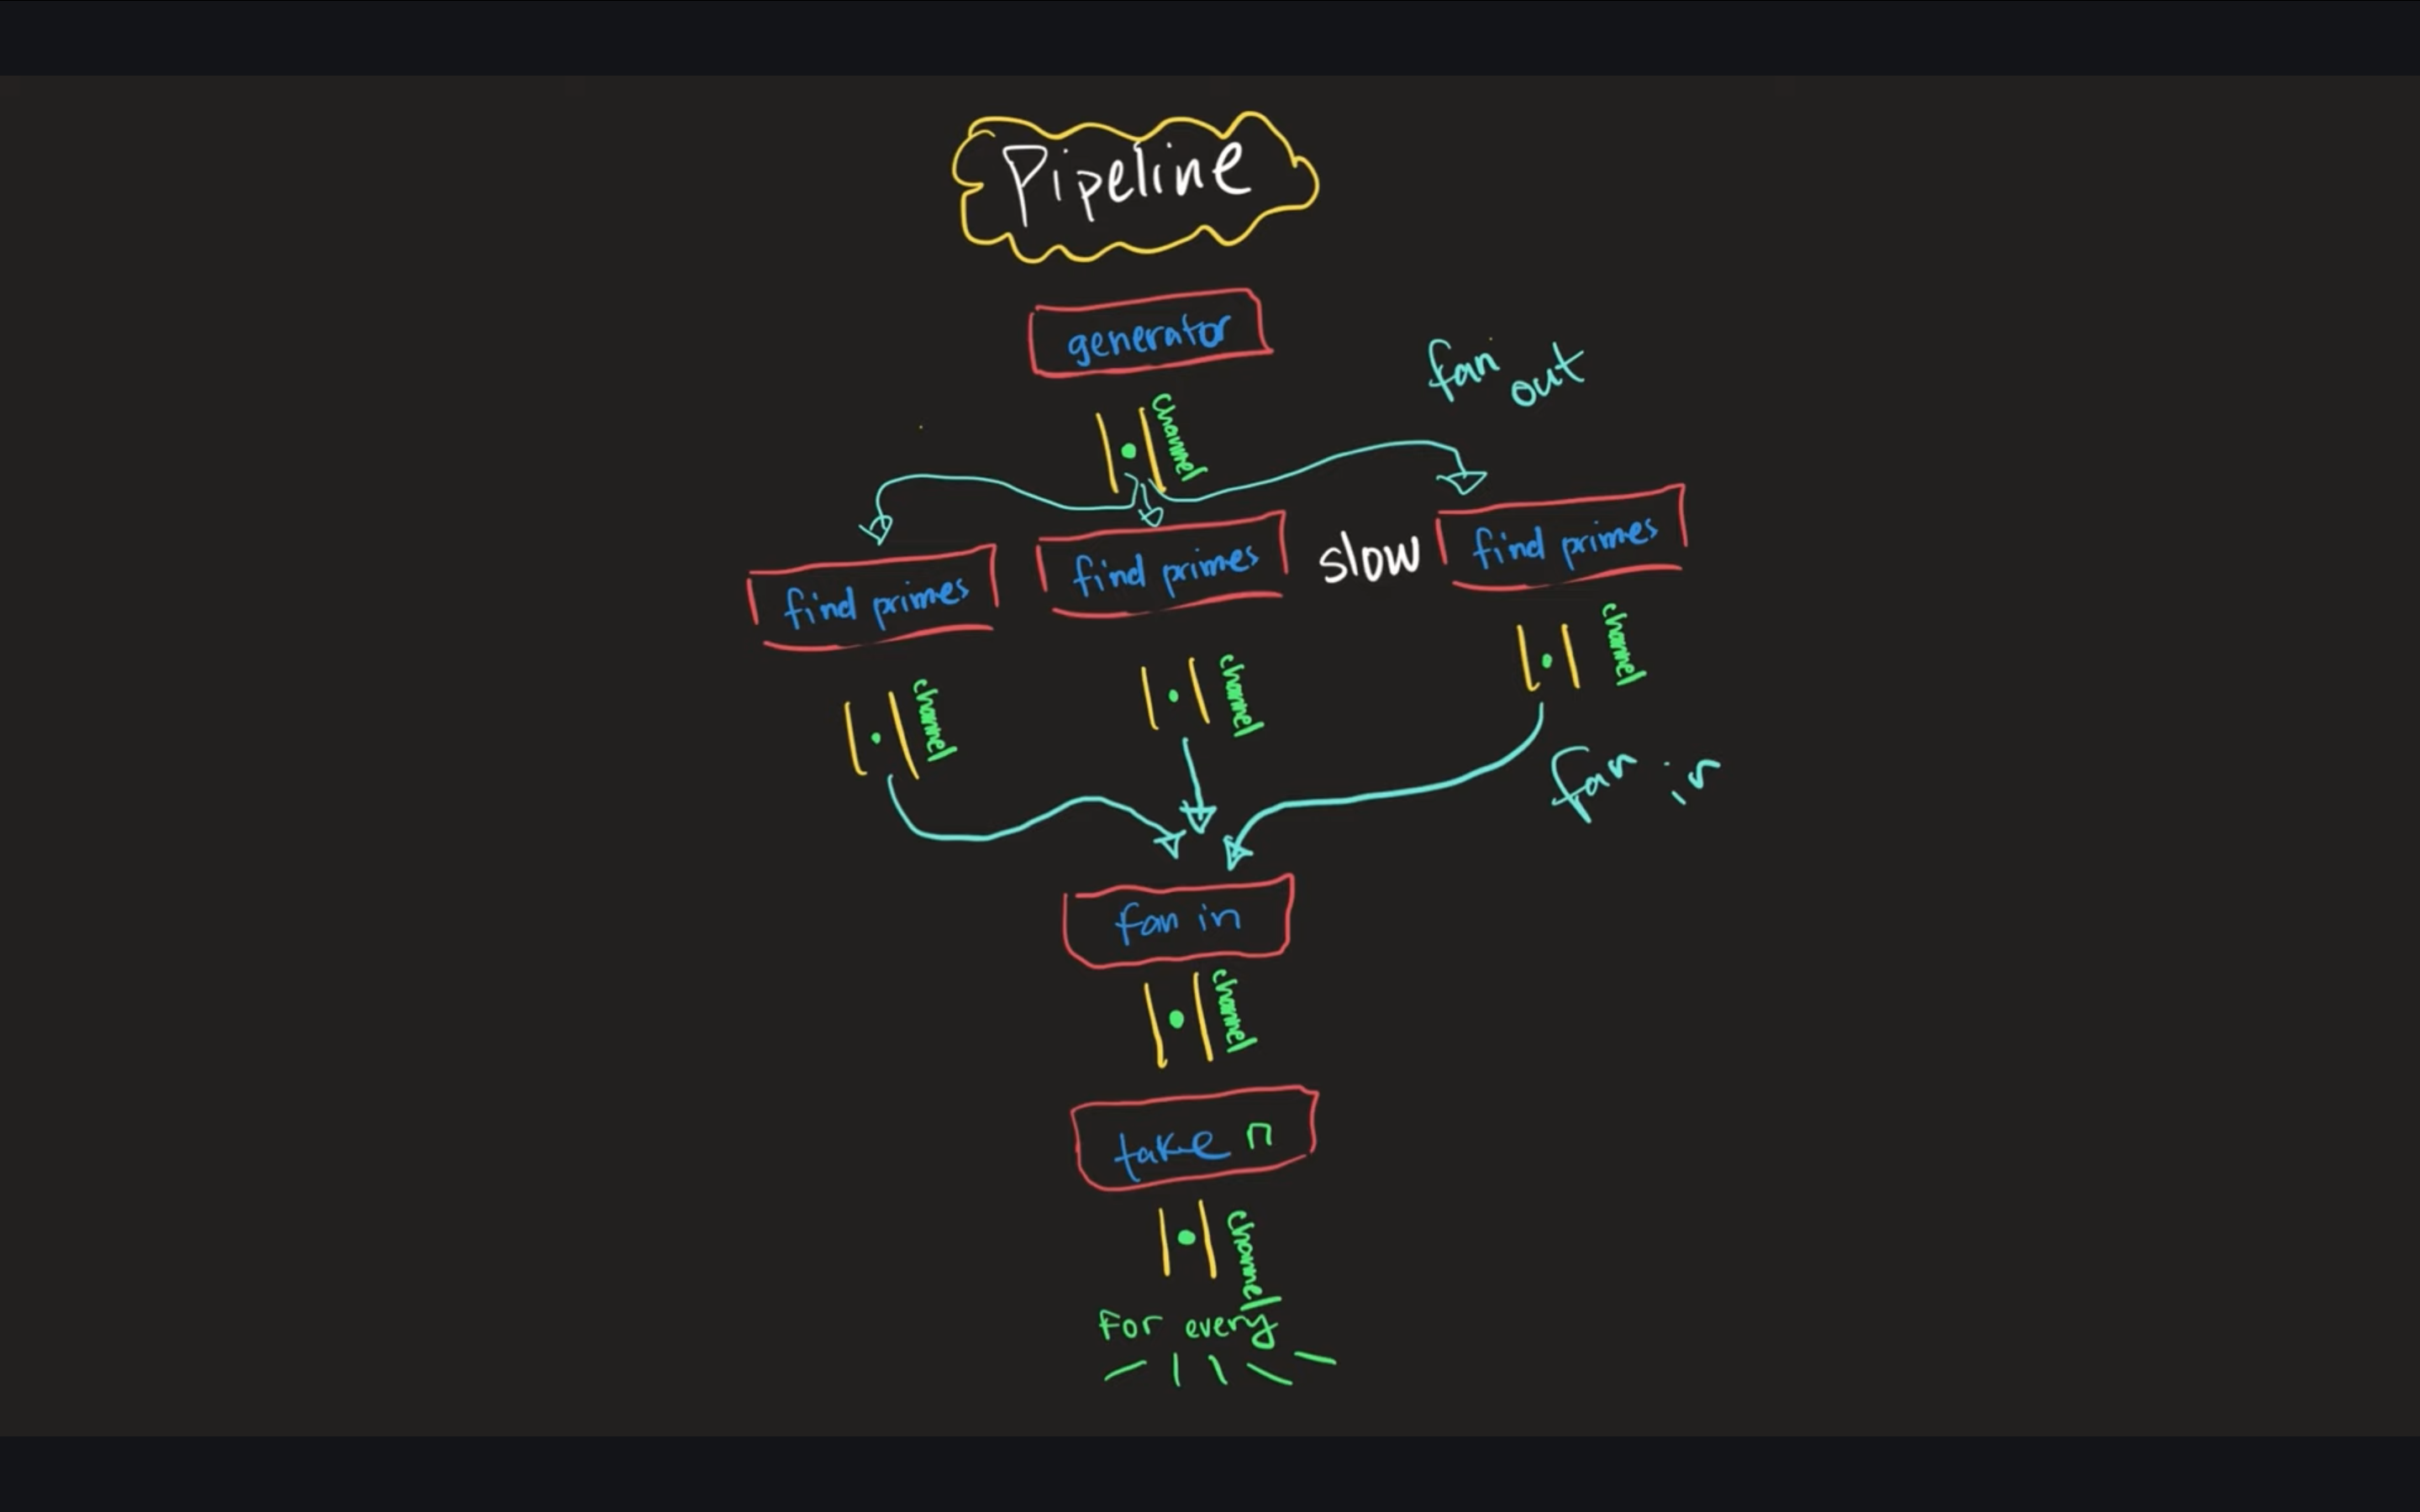 Pipeline
generator
channel
fan out
find primes
find primes
slow
find primes
channel
channel
channel
fan in
fan in
channel
take n
channel
for every